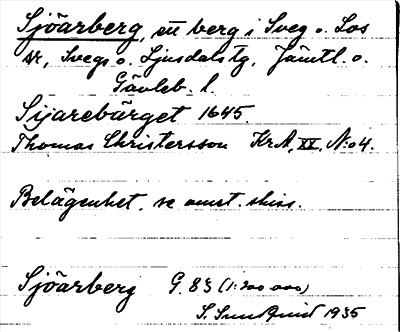 Sjöarberg, ett berg i Sveg o. Los
sr, Svegs o. Ljusdals tg, Jämtl. o.
Gävleb. l.
Sijarebärget 1645.
Thomas Christersson Kr.A, XV, N:o 4.
Belägenhet. se omst. skiss.
Sjöarberg G. 83 (1:200 000)
S. Sundquist 1935